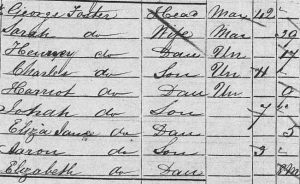 George Foster Head Mar 42
Sarah do Wife Mar 39
do Dau Un 17
Charles do Son Un 11
Harriot do Dau Un 9
Josiah do Son 7
Eliza Jane do Dau 5
Aaron do Son 3
Elizabeth do Dau